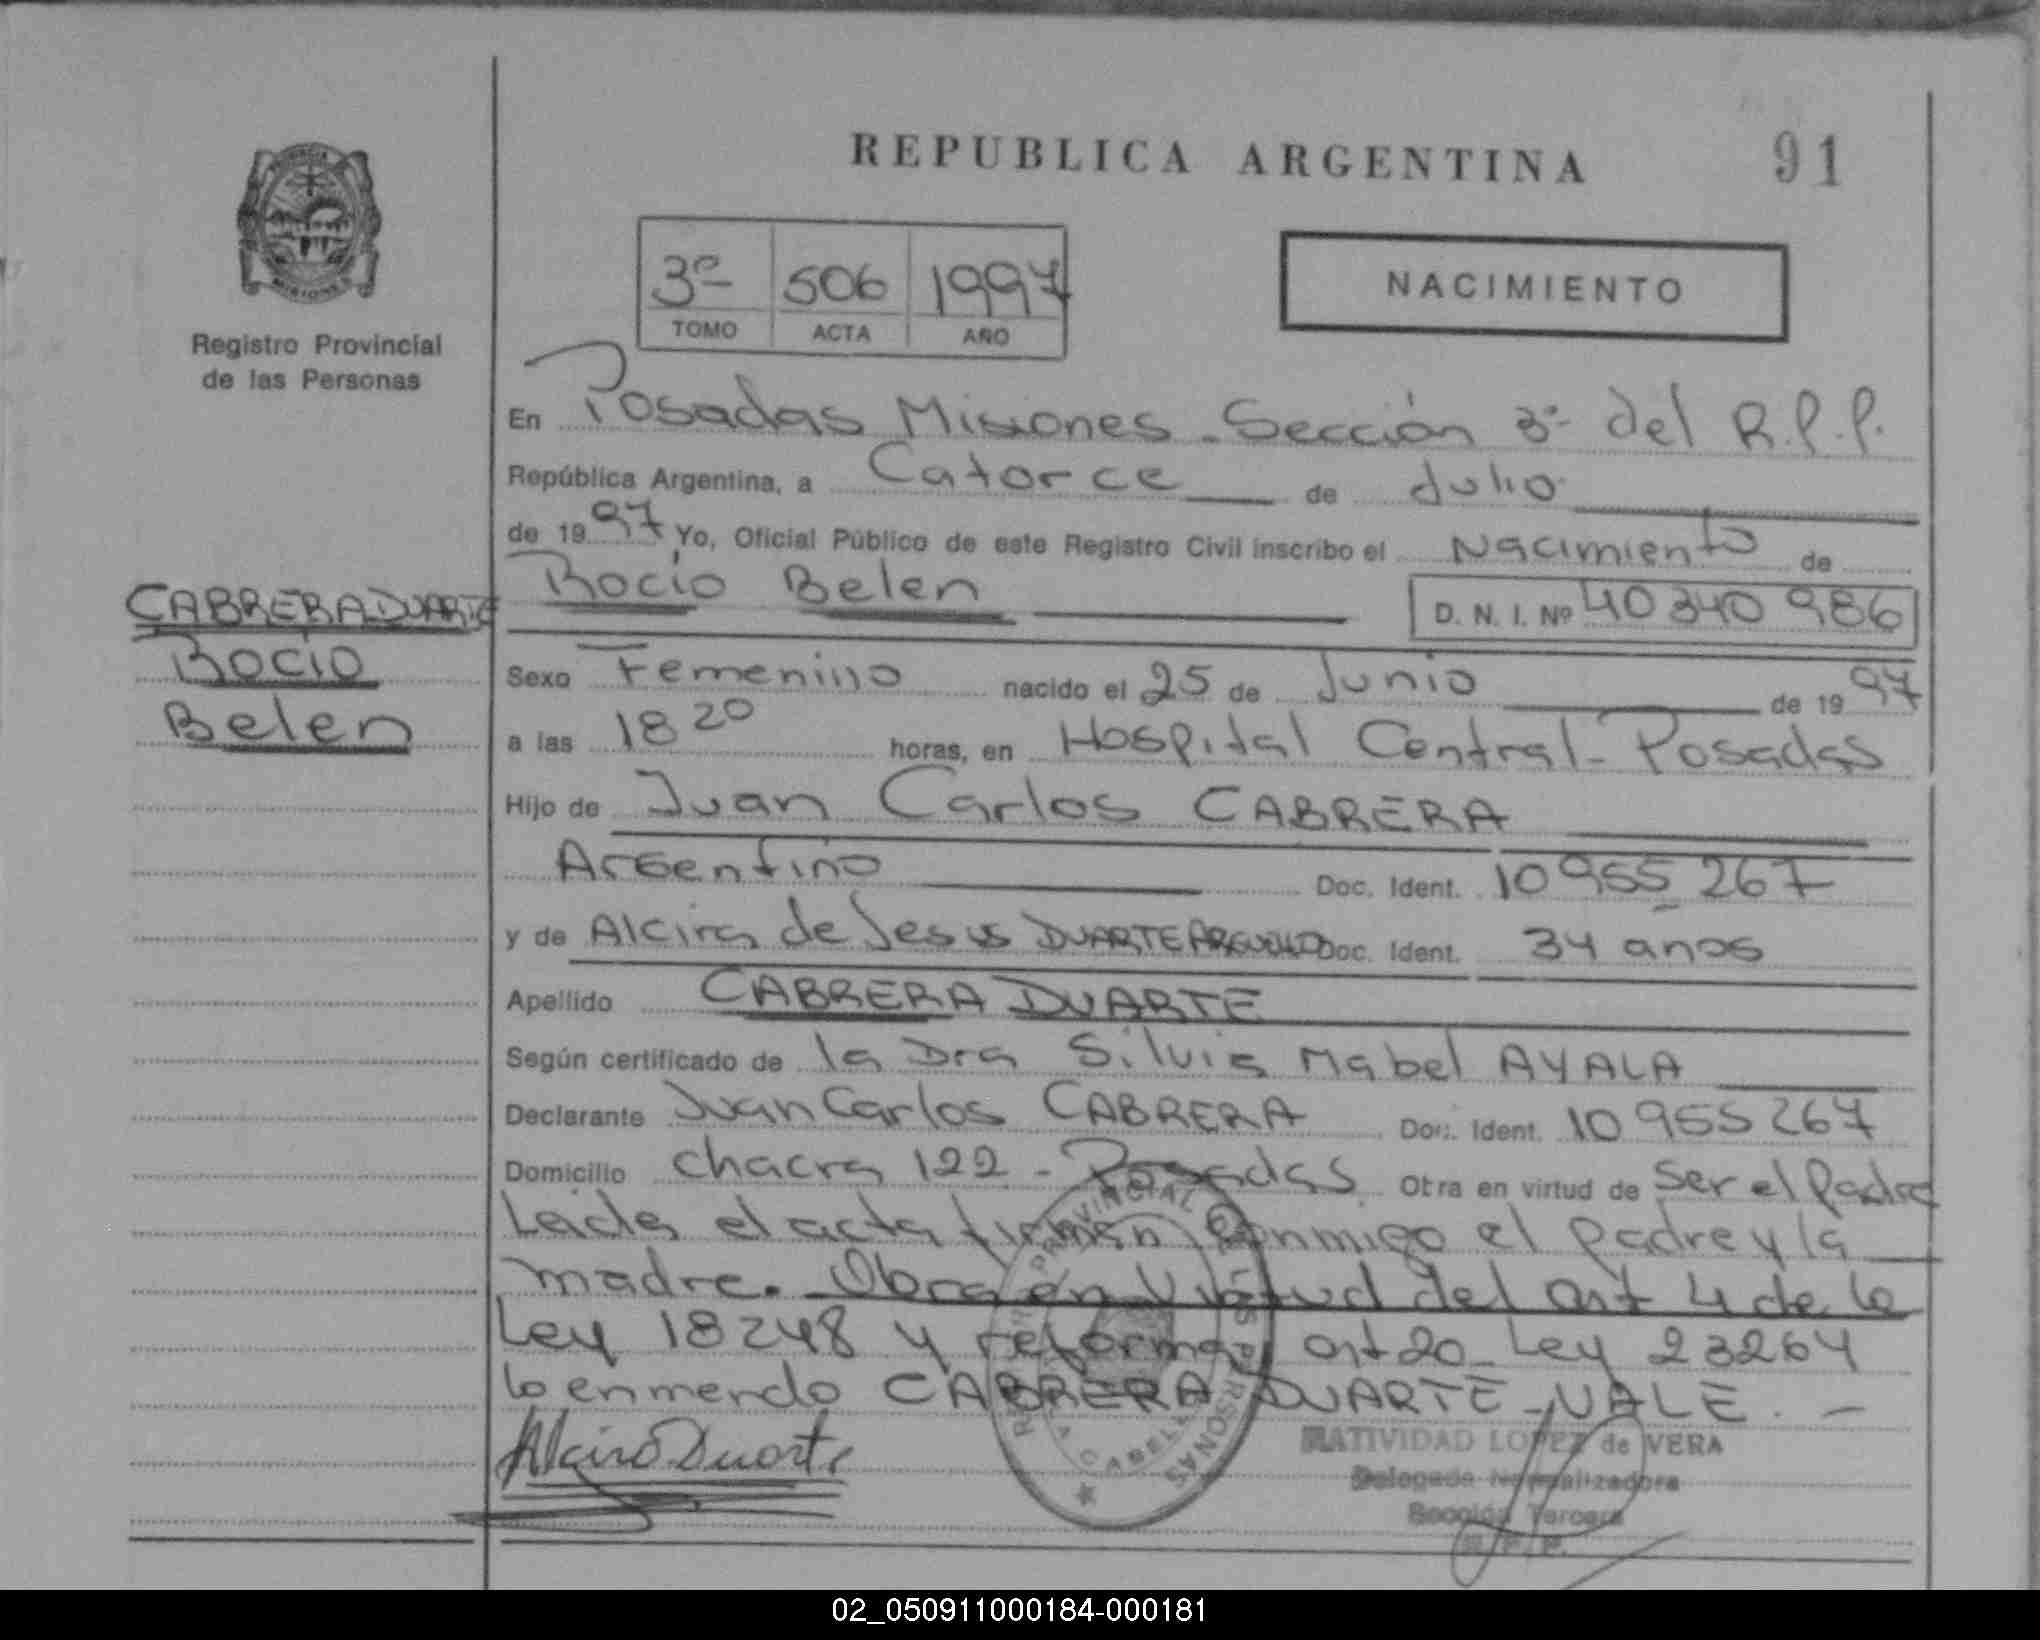 REPUBLICA ARGENTINA
91
3º 506 1997
TOMO ACTA AÑO
NACIMIENTO
Registro Provincial
de las Personas
CABRERA DUARTE
Rocio
Belen
En Posadas Misiones - Sección 3º del R.P.P.
República Argentina, a Catorce de Julio
de 1997 Yo, Oficial Público de este Registro Civil inscribo el Nacimiento de
Rocio Belen D. N. I. Nº 40 340 986
Sexo Femenino nacido el 25 de Junio de 1997
a las 18 20 horas, en Hospital Central - Posadas
Hijo de Juan Carlos CABRERA
Argentino Doc. Ident. 10 955 267
y de Alcira de Jesus DUARTE ARGUELLO Doc. Ident. 34 anos
Apellido CABRERA DUARTE
Según certificado de la Dra Silvia Mabel AYALA
Declarante Juan Carlos CABRERA Doc. Ident. 10 955 267
Domicilio chacra 122 - Posadas Otra en virtud de Ser el Padre
Leida el acta firman conmigo el padre y la
madre. Obra en Virtud del art 4 de la
Ley 18248 y reforma art 20 - Ley 23264
lo enmendo CABRERA DUARTE - VALE. -
Alcira Duarte
NATIVIDAD LOPEZ de VERA
Delegada Normalizadora
Sección Tercera
R. P. P.
02_050911000184-000181